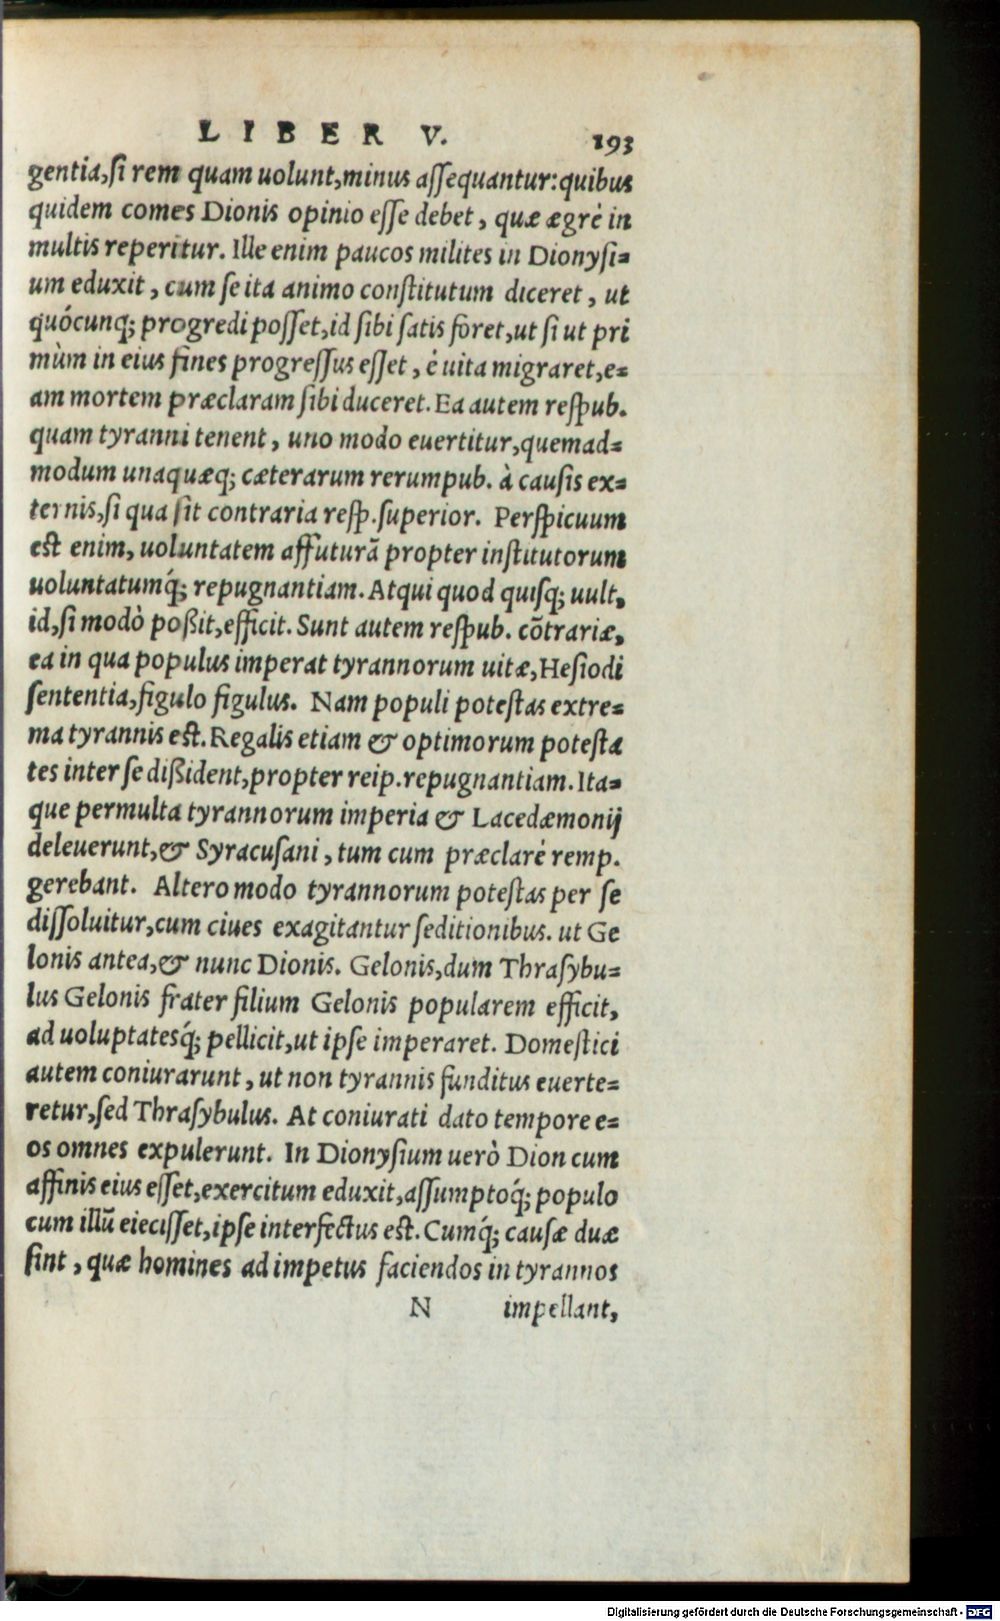 LIBER V. 193
gentia,ſi rem quam uolunt,minus aſſequantur:quibus
quidem comes Dionis opinio eſſe debet, quæ ægrè in
multis reperitur. Ille enim paucos milites in Dionyſi=
um eduxit, cum ſe ita animo conſtitutum diceret, ut
quócunq; progredi poſſet,id ſibi ſatis foret,ut ſi ut pri
mùm in eius fines progreſſus eſſet, è uita migraret,e=
am mortem præclaram ſibi duceret. Ea autem reſpub.
quam tyranni tenent, uno modo euertitur,quemad=
modum unaquæq; cæterarum rerumpub. à cauſis ex=
ternis,ſi qua ſit contraria reſp.ſuperior. Perſpicuum
est enim, uoluntatem affuturã propter inſtitutorum
uoluntatumq́; repugnantiam. Atqui quod quiſq; uult,
id,ſi modò poßit,efficit. Sunt autem reſpub. cõtrariæ,
ea in qua populus imperat tyrannorum uitæ,Heſiodi
ſententia,figulo figulus. Nam populi poteſtas extre=
ma tyrannis eſt. Regalis etiam & optimorum poteſta
tes inter ſe dißident,propter reip.repugnantiam. Ita=
que permulta tyrannorum imperia & Lacedæmonij
deleuerunt,& Syracuſani, tum cum præclarè remp.
gerebant. Altero modo tyrannorum poteſtas per ſe
diſſoluitur,cum ciues exagitantur ſeditionibus. ut Ge
lonis antea,& nunc Dionis. Gelonis,dum Thraſybu=
lus Gelonis frater filium Gelonis popularem efficit,
ad uoluptatesq́; pellicit,ut ipſe imperaret. Domeſtici
autem coniurarunt, ut non tyrannis funditus euerte=
retur,ſed Thraſybulus. At coniurati dato tempore e=
os omnes expulerunt. In Dionyſium uerò Dion cum
affinis eius eſſet,exercitum eduxit,aſſumptoq́; populo
cum illũ eieciſſet,ipſe interfectus eſt. Cumq́; cauſæ duæ
ſint, quæ homines ad impetus faciendos in tyrannos
N impellant,
Digitalisierung gefördert durch die Deutsche Forschungsgemeinschaft - DFG